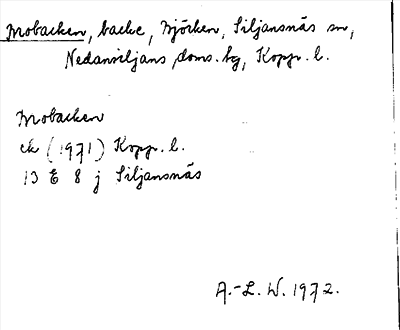 Mobacken, backe, Björken, Siljansnäs sn,
Nedansiljans doms. hg, Kopp. l.
Mobacken
ek (1971) Kopp. l.
13 E 8 j Siljansnäs
A.-L. W. 1972.